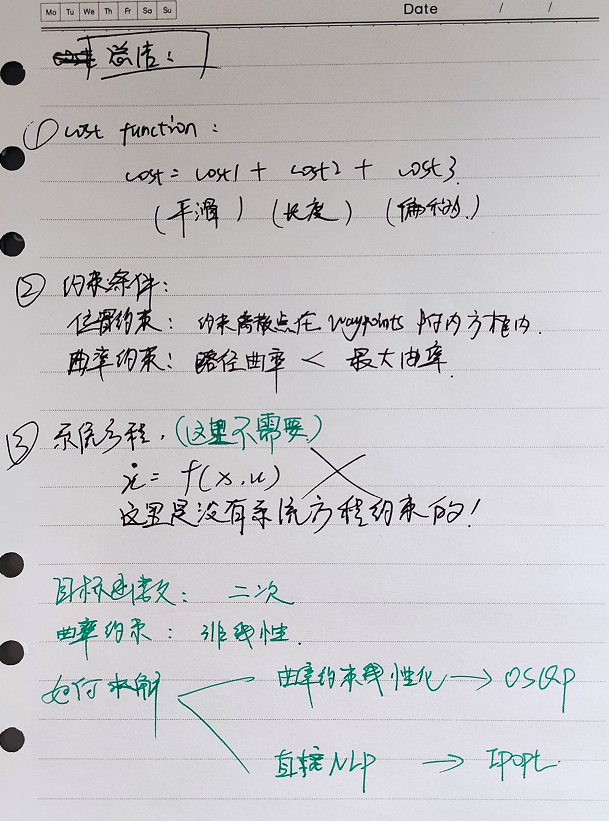 Mo Tu We Th Fr Sa Su Date / /
总结：
① cost function：
cost = cost1 + cost2 + cost3
(平滑) (长度) (偏移的)
② 约束条件：
位置约束：约束离散点在 waypoints 附内方框内.
曲率约束：路径曲率 < 最大曲率.
③ 系统方程. (这里不需要)
ẋ = f(x,u)
这里是没有系统方程约束的！
目标函数：二次
曲率约束：非线性.
如何求解
曲率约束线性化 → OSQP
直接NLP → IPOPT